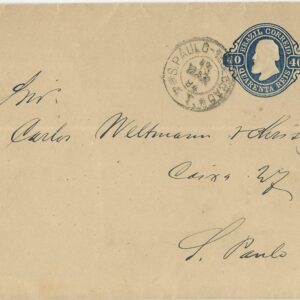 BRAZIL CORREIO
40 40
QUARENTA REIS
S. PAULO
Carlos Weltmann &
Caixa 27
S. Paulo